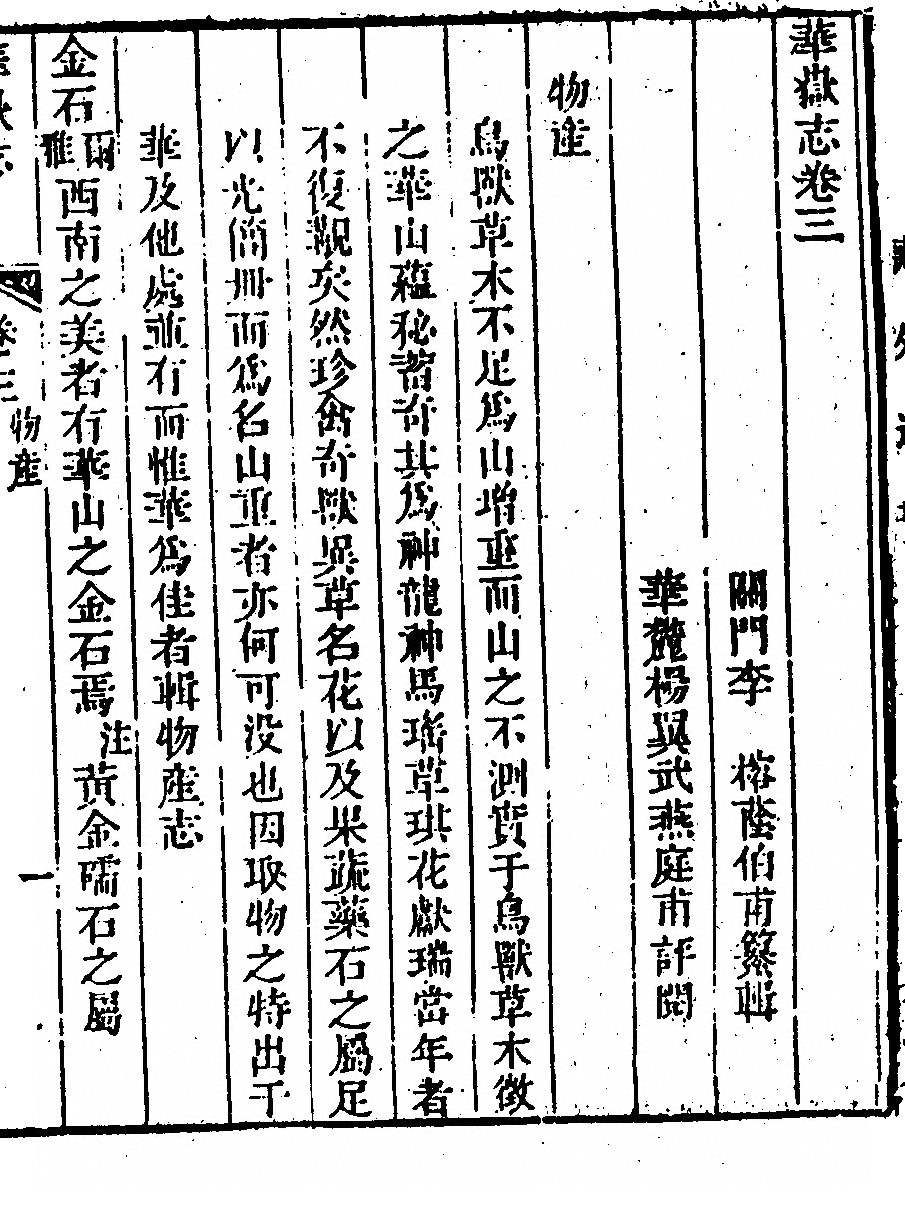 華嶽志卷三
關門李　榕蔭伯甫纂輯
華麓楊翼武燕庭甫評閱
物產
鳥獸草木不足爲山增重而山之不測實于鳥獸草木徵
之華山蘊秘畜奇其爲神龍神馬瑤草琪花獻瑞當年者
不復覯矣然珍禽奇獸異草名花以及果蔬藥石之屬足
以光簡冊而爲名山重者亦何可没也因取物之特出于
華及他處並有而惟華爲佳者輯物產志
金石爾雅西南之美者有華山之金石焉注黃金礝石之屬
物產
一